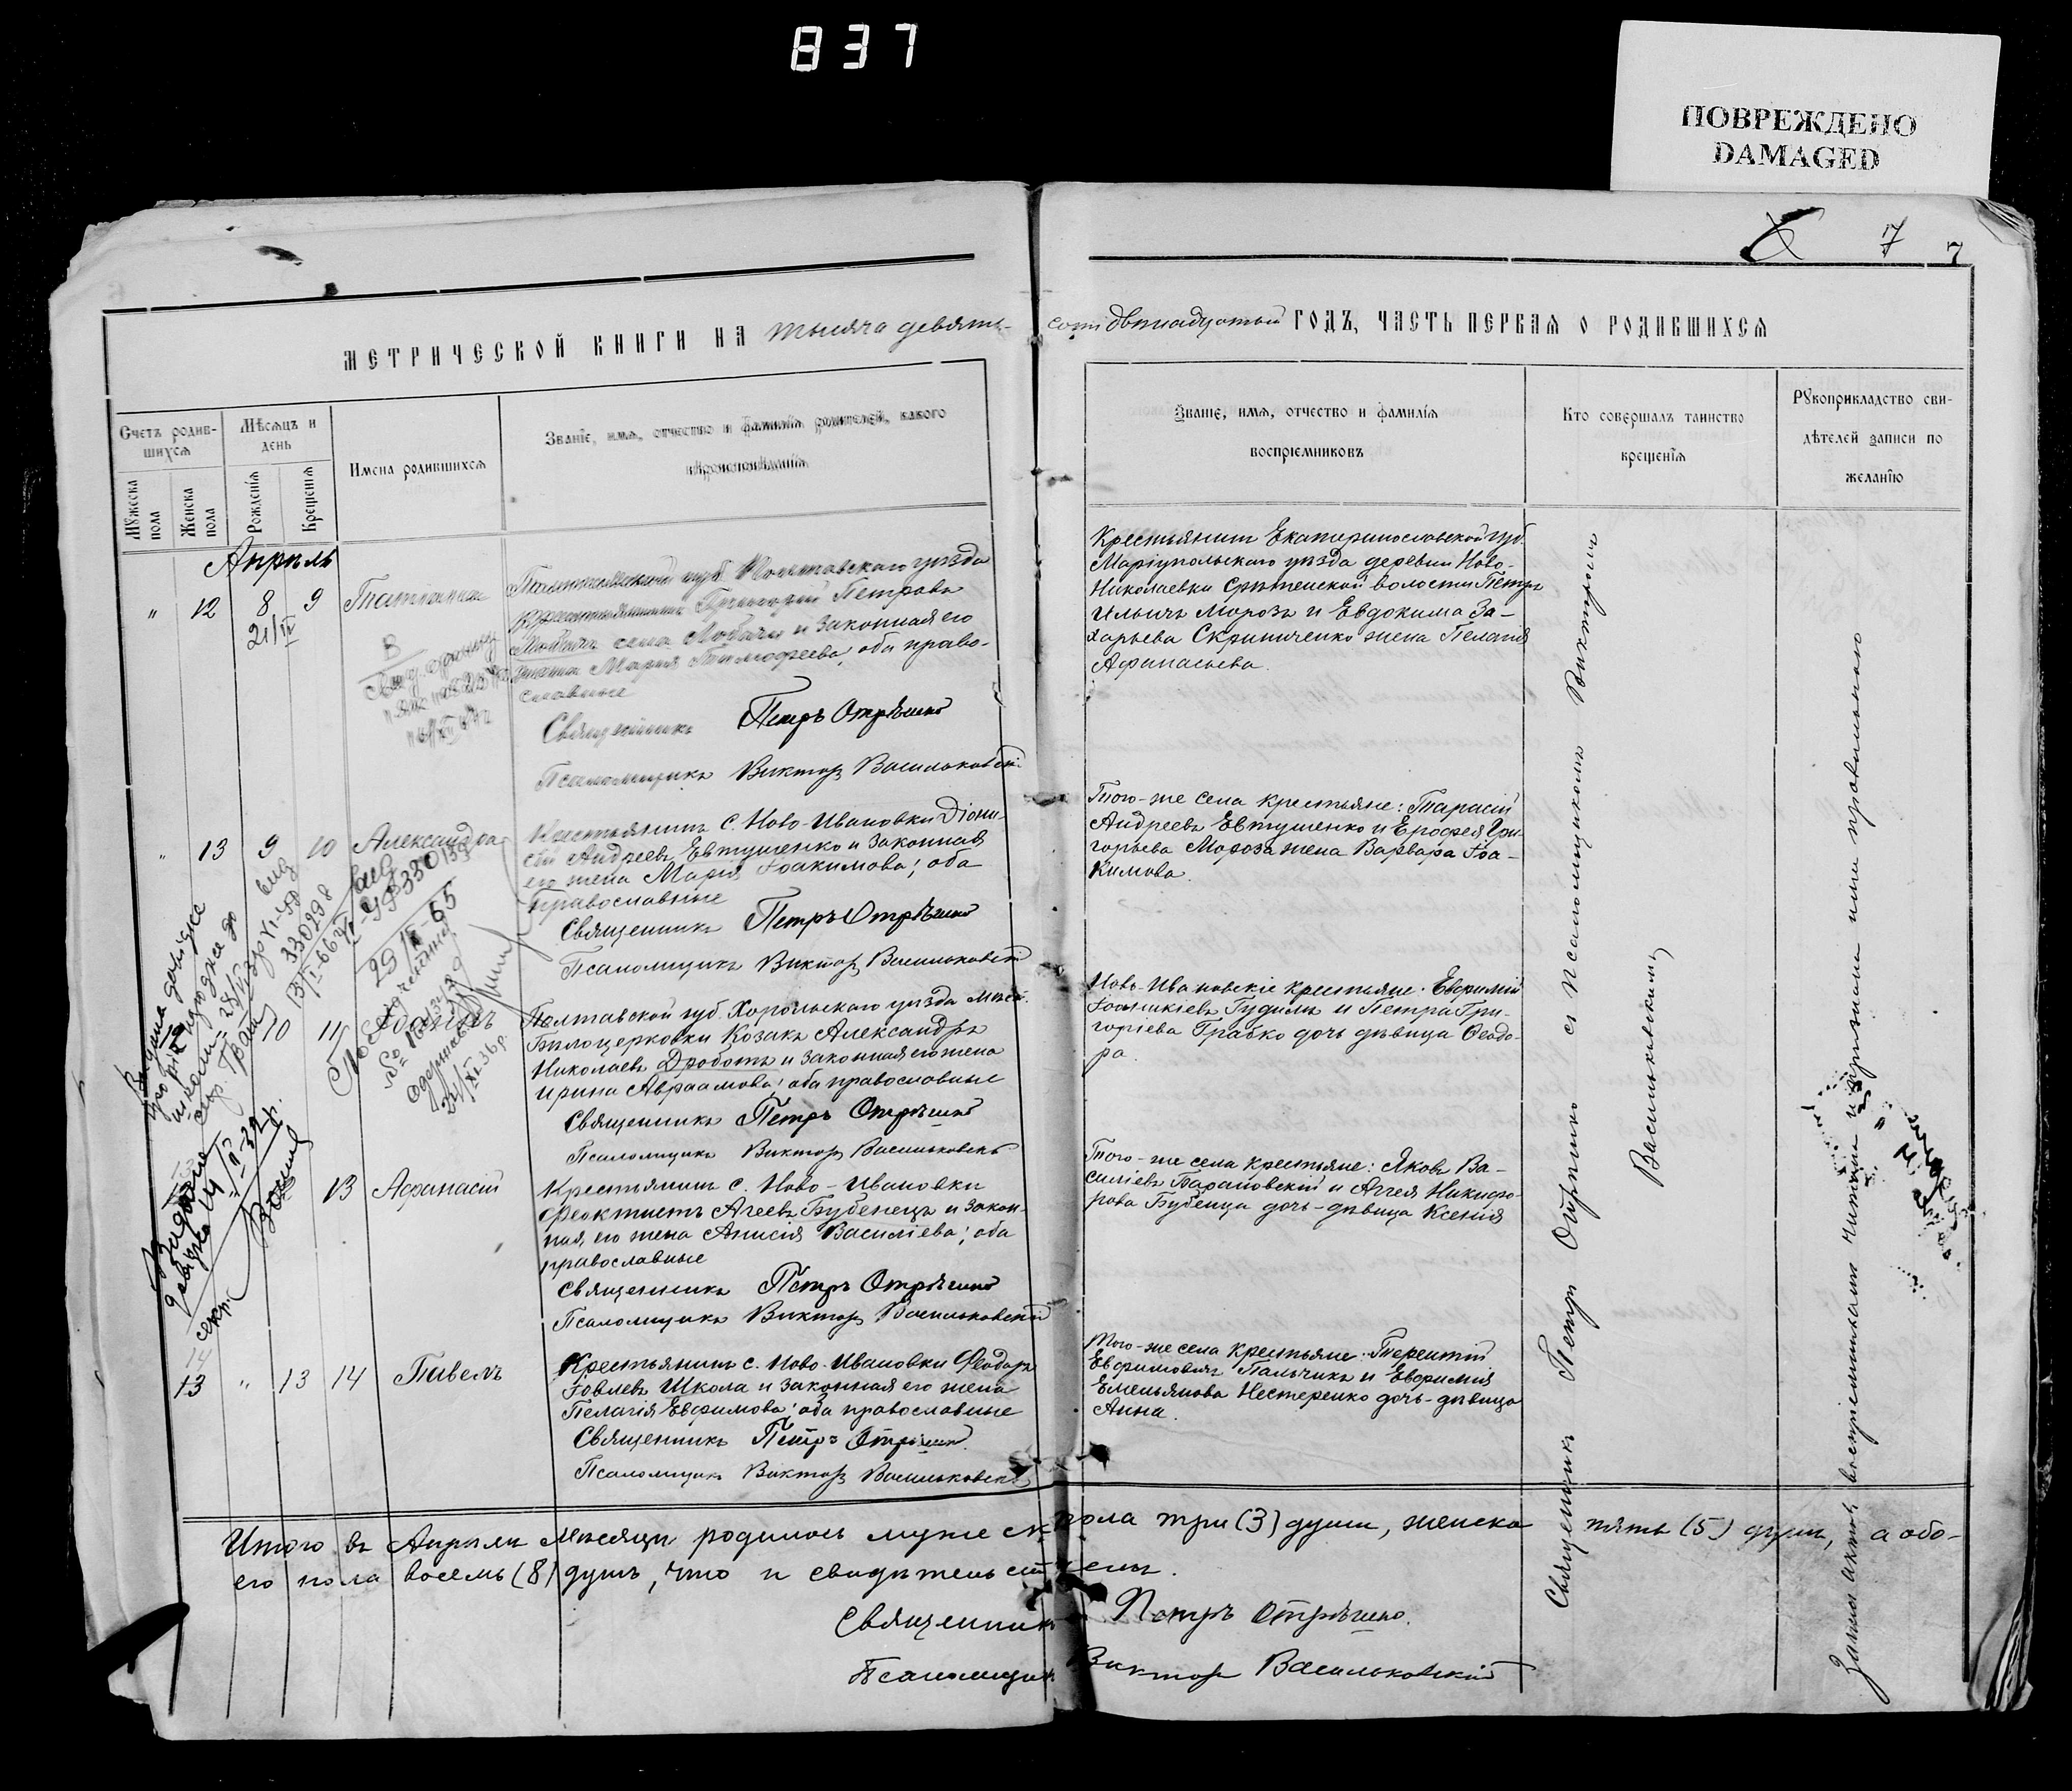 837
ПОВРЕЖДЕНО
DAMAGED
7 7
МЕТРИЧЕСКОЙ КНИГИ НА тысяча девять-
сотъ двѣнадцатый ГОДЪ, ЧАСТЬ ПЕРВАЯ О РОДИВШИХСЯ
Счетъ родив-
шихся
Мужеска пола
Женска пола
Мѣсяцъ и
день
Рожденія
Крещенія
Имена родившихся
Званіе, имя, отчество и фамилія родителей, какого
вѣроисповѣданія
Званіе, имя, отчество и фамилія
воспріемниковъ
Кто совершалъ таинство
крещенія
Рукоприкладство сви-
дѣтелей записи по
желанію
Апрѣль
" 12 8 9 Татіанна
21/IV
Полтавской губ. Полтавскаго уѣзда
крестьянинъ Григорій Петровъ
Лобачъ села Лобачи и законная его
жена Марія Тимофеева, оба право-
славные
Священникъ Петръ Отрѣшко
Псаломщикъ Викторъ Васильковскій
Крестьянинъ Екатеринославской губ.
Маріупольскаго уѣзда деревни Ново-
Николаевки Срѣтенской волости Петръ
Ильичъ Морозъ и Евдокима За-
харьева Скрипниченко жена Пелагія
Афанасьева.
" 13 9 10 Александра
Крестьянинъ с. Ново-Ивановки Діони-
сій Андреевъ Евтушенко и законная
его жена Марія Іоакимова; оба
православные
Священникъ Петръ Отрѣшко
Псаломщикъ Викторъ Васильковскій
Того-же села крестьяне: Тарасій
Андреевъ Евтушенко и Ерофея Гри-
горьева Мороза жена Варвара Іоа-
кимова.
10 11
Полтавской губ. Хорольскаго уѣзда мѣст.
Бѣлоцерковки Козакъ Александръ
Николаевъ Дроботъ и законная его жена
Ирина Авраамова; оба православные
Священникъ Петръ Отрѣшко
Псаломщикъ Викторъ Васильковскій
Ново-Ивановскіе крестьяне: Евфимій
Іоанникіевъ Гудимъ и Петра Гри-
горіева Грабко дочь дѣвица Ѳеодо-
ра.
13 Афанасій
Крестьянинъ с. Ново-Ивановки
Ѳеоктистъ Агеевъ Бубенецъ и закон-
ная его жена Анисія Василіева; оба
православные
Священникъ Петръ Отрѣшко
Псаломщикъ Викторъ Васильковскій
Того-же села крестьяне: Яковъ Ва-
силіевъ Барановскій и Аггея Никифо-
рова Бубенца дочь-дѣвица Ксенія
13 " 13 14 Павелъ
Крестьянинъ с. Ново-Ивановки Ѳеодоръ
Іовлевъ Школа и законная его жена
Пелагія Евфимова; оба православные
Священникъ Петръ Отрѣшко.
Псаломщикъ Викторъ Васильковскій
Того-же села крестьяне: Терентій
Евфимовичъ Пальчикъ и Евфимія
Емельянова Нестеренко дочь-дѣвица
Анна.
Священникъ Петръ Отрѣшко съ псаломщикомъ Викторомъ
Васильковскимъ
Итого въ Апрѣлѣ мѣсяцѣ родилось мужеска пола три (3) души, женска пять (5) душъ, а обо-
его пола восемь (8) душъ, что и свидѣтельствуемъ.
Священникъ Петръ Отрѣшко.
Псаломщикъ Викторъ Васильковскій